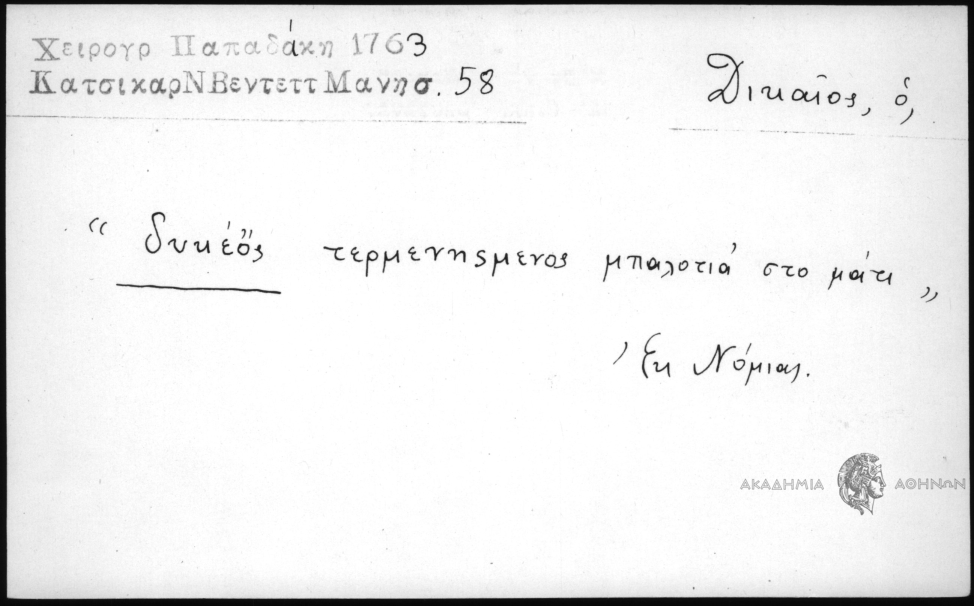 Χειρογρ Παπαδάκη 1763
ΚατσικαρΝΒεντεττΜανησ. 58
Δικαῖος, ὁ,
“ δυκέὃς τερμενηςμενος μπαλοτιά στο μάτι „
Ἐκ Νόμιας.
ΑΚΑΔΗΜΙΑ ΑΘΗΝΩΝ